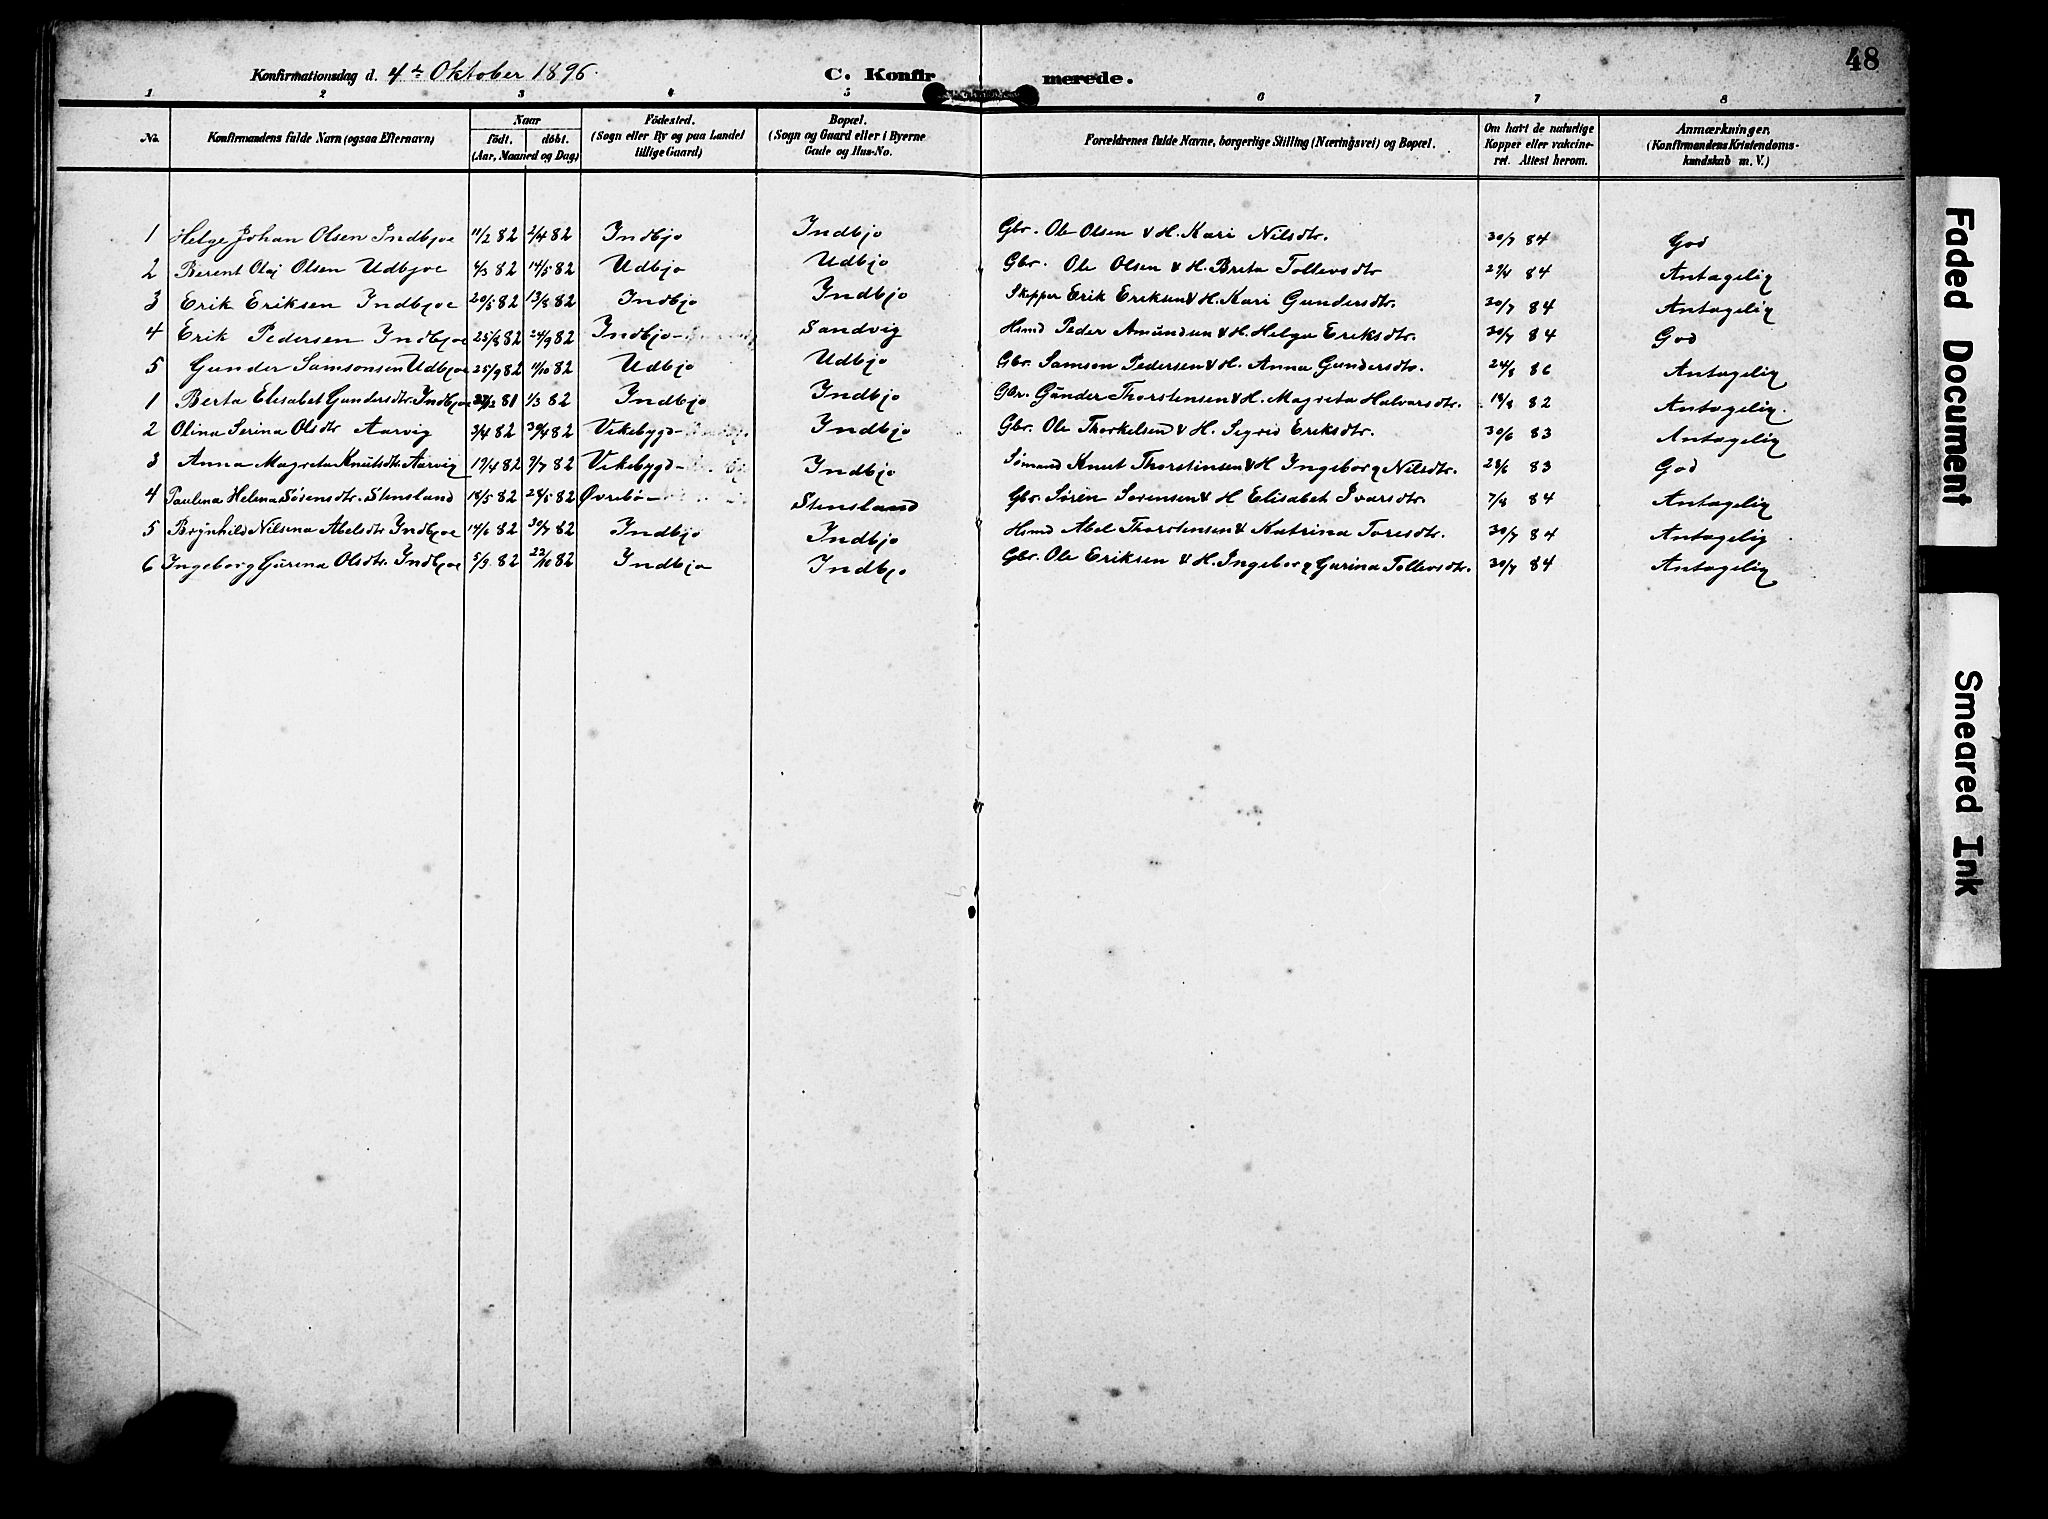 48
Konfirmationsdag d. 4de Oktober 1896.
C. Konfirmerede.
1 2 3 4 5 6 7 8
No. Konfirmandens fulde Navn (ogsaa Efternavn) Naar födt. döbt. (Aar, Maaned og Dag) Födested. (Sogn eller By og paa Landet tillige Gaard) Bopæl. (Sogn og Gaard eller i Byerne Gade og Hus-No. Forældrenes fulde Navne, borgerlige Stilling (Næringsvei) og Bopæl. Om havt de naturlige Kopper eller vakcineret. Attest herom. Anmærkninger. (Konfirmandens Kristendomskundskab m. V.)
1 Helge Johan Olsen Indbjoe 11/2 82 2/4 82 Indbjo Indbjo Gbr. Ole Olsen & H. Kari Nilsdtr. 30/7 84 God
2 Berent Olaj Olsen Udbjoe 4/3 82 14/5 82 Udbjo Udbjo Gbr. Ole Olsen & H. Brita Tollevsdtr 84 Antagelig
3 Erik Eriksen Indbjoe 82 13/8 82 Indbjo Indbjo Skipper Erik Eriksen & H. Kari Gundersdtr. 30/7 84 Antagelig
4 Erik Pedersen Indbjoe 25/8 82 24/9 82 Indbjo- Sandvig Hsmd Peder Amundsen & H. Helga Eriksdtr. 30/7 84 God
5 Gunder Samsonsen Udbjoe 25/9 82 11/10 82 Udbjo Udbjo Gbr. Samson Pedersen & H. Anna Gundersdtr. 24/8 86 Antagelig
1 Berta Elisabet Gundersdtr. Indbjoe 81 1/3 82 Indbjo Indbjo Gbr. Gunder Thorstensen & H. Magreta Halvarsdtr. 18/8 82 Antagelig.
2 Olina Serina Olsdtr Aarvig 3/4 82 30/4 82 Vikebygd- Indbjo Gbr. Ole Thorkelsen & H. Sigrid Eriksdtr. 30/6 83 Antagelig
3 Anna Magreta Knutsdtr. Aarvig 19/4 82 9/7 82 Vikebygd- Indbjo Sømand Knut Thorstinsen & H Ingeborg Nilsdtr. 28/6 83 God
4 Paulina Helena Sörensdtr. Stensland 18/5 82 29/5 82 Øvrebö- Stensland Gbr. Sören Sorensen & H Elisabet Ivarsdtr. 7/8 84 Antagelig
5 Brynhild Nilsina Abelsdtr Indbjoe 14/6 82 30/7 82 Indbjo Indbjo Hsmd Abel Thorstensen & Katrina Toresdtr. 30/7 84 Antagelig
6 Ingeborg Gurina Olsdtr. Indbjoe 5/9 82 22/10 82 Indbjo Indbjo Gbr. Ole Eriksen & H. Ingeborg Gurina Tollevsdtr. 30/7 84 Antagelig
Faded Document
Smeared Ink